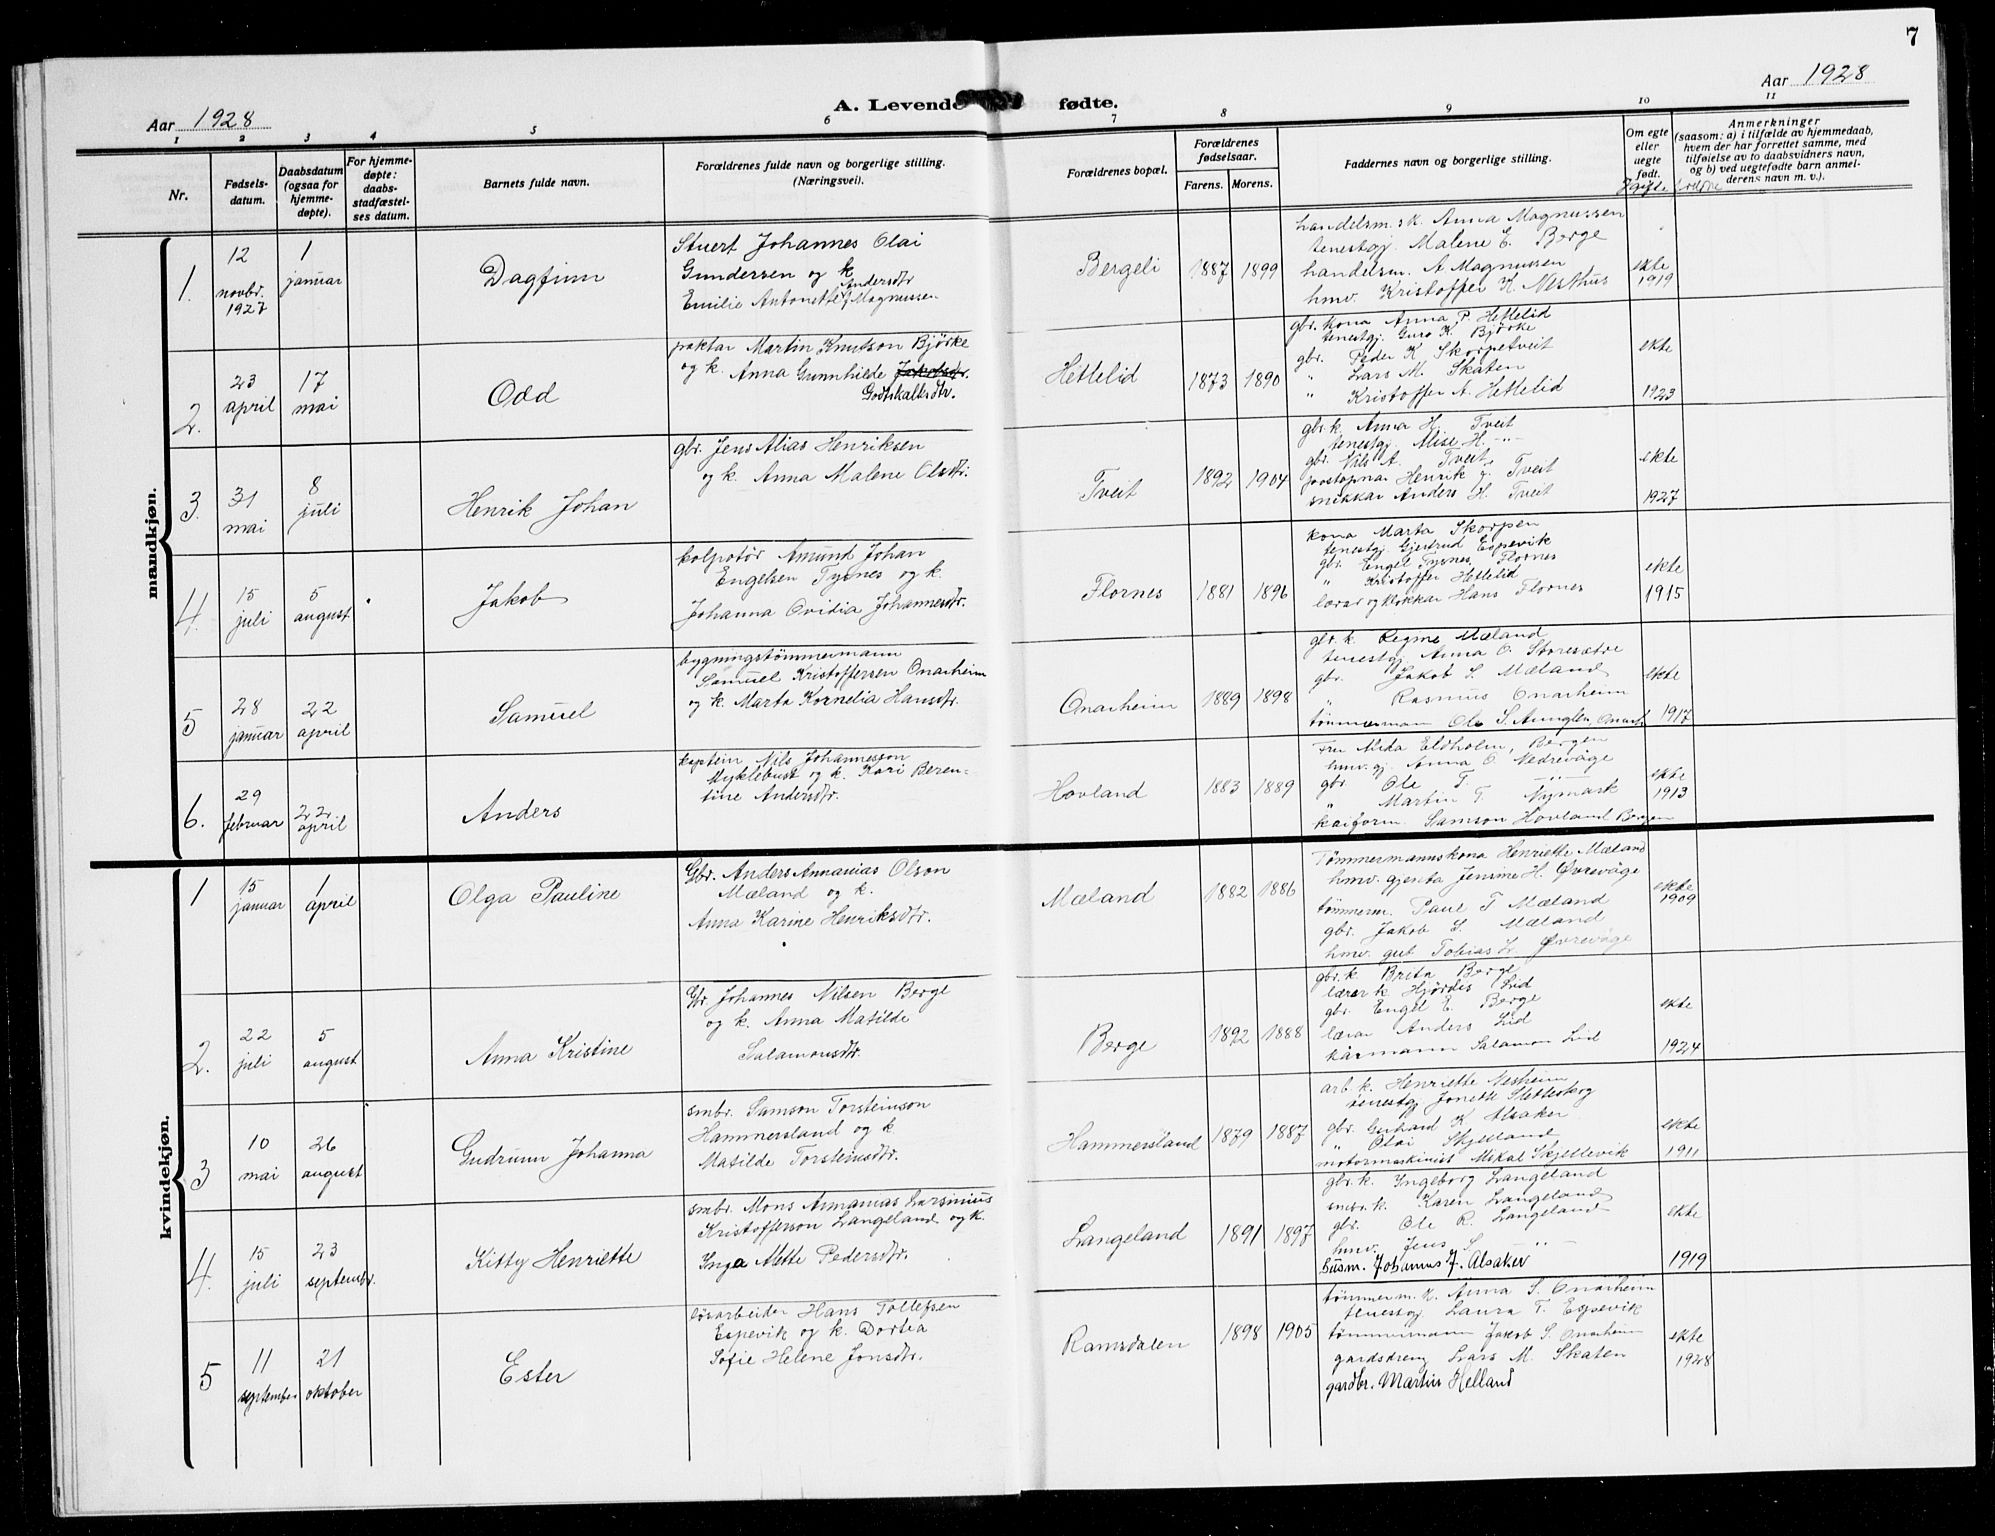 7
Aar 1928
A. Levende fødte.
Aar 1928
1 2 3 4 5 6 7 8 9 10 11
Nr.
Fødsels-
datum.
Daabsdatum
(ogsaa for
hjemme-
døpte).
For hjemme-
døpte:
daabs-
stadfæstel-
ses datum.
Barnets fulde navn.
Forældrenes fulde navn og borgerlige stilling.
(Næringsvei).
Forældrenes bopæl.
Forældrenes
fødselsaar.
Farens. Morens.
Faddernes navn og borgerlige stilling.
Om egte
eller
uegte
født.
Anmerkninger
(saasom: a) i tilfælde av hjemmedaab,
hvem der har forrettet samme, med
tilføielse av to daabsvidners navn,
og b) ved uegtefødte barn anmel-
derens navn m. v.).
mandkjøn.
1.
12
novbr.
1927
1
januar
Dagfinn
Stuert Johannes Olai
Gundersen og k
Andersdtr
Emilie Antonette Magnussen
Bergeli
1887 1899
handelsm.sk. Anna Magnussen
tenestgj. Malene E. Berge
handelsm. A. Magnussen
hmv. Kristoffer K. Nesthus
ekte
1919
2.
23
april
17
mai
Odd
paktar Martin Knutson Bjørke
og k. Anna Gunnhilde Jakobsdtr.
Godtskalksdtr.
Hettelid
1873 1890
gbr. kona Anna P. Hettelid
tenestgj. Guro K. Bjørke
gbr. Peder K. Skorpetveit
" Lars M. Skaten
" Kristoffer A. Hettelid
ekte
1923
3.
31
mai
8
juli
Henrik Johan
gbr. Jens Alias Henriksen
og k. Anna Malene Olsdtr.
Tveit
1892 1904
gbr.k. Anna H. Tveit
tenestgj. Alise H. -"-
gbr. Nils A. Tveit
postopnar Henrik J. Tveit
snikkar Anders H. Tveit
ekte
1927
4.
15
juli
5
august
Jakob
kolportør Amund Johan
Engelsen Tysnes og k.
Johanna Ovidia Johannesdtr.
Flornes
1881 1896
kona Marta Skorpen
tenestgj. Gjertrud Espevik
gbr. Engel Tysnes, Flornes
" Kristoffer Hettelid
lærar og klokkar Hans Flornes
ekte
1915
5
28
januar
22
april
Samuel
bygningstømmermann
Samuel Kristoffersen Onarheim
og k. Marta Kornelia Hansdtr.
Onarheim
1889 1898
gbr. k. Regine Mæland
tenestgj Anna O. Storesætre
gbr. Jakob S. Mæland
" Rasmus Onarheim
tømmermann Ole S.
ekte
1917
6.
29
februar
22
april
Anders
kaptein Nils Johannesson
Myklebust og k. Kari Beren-
tine Andersdtr.
Hovland
1883 1889
Fru Mida Eldholm, Bergen
hmv. gj. Anna O. Nedrevåge
gbr. Ole T. -"-
" Martin T. Nymark
kaiform. Samson Hovland Bergen
ekte
1913
kvindekjøn.
1
15
januar
1
april
Olga Pauline
Gbr. Anders Annanias Olson
Mæland og k.
Anna Karine Henriksdtr.
Mæland
1882 1886
Tømmermannskona Henriette Mæland
hmv. gjenta Jensine H. Øvrevåge
tømmerm. Paul T. Mæland
gbr. Jakob S. Mæland
hmv. gut Tobias L. Øvrevåge
ekte
1909
2.
22
juli
5
august
Anna Kristine
Gbr Johannes Nilsen Berge
og k. Anna Matilde
Salamonsdtr.
Berge
1892 1888
gbr. k. Brita Berge
lærar k. Hjørdis Lid
gbr. Engel E. Berge
lærar Anders Lid
kårmann Salamon Lid
ekte
1924
3
10
mai
26
august
Gudrunn Johanna
smbr. Samson Torsteinson
Hammersland og k
Matilde Torsteinsdtr.
Hammersland
1879 1887
arb k. Henriette Nesheim
tenestgj Jonette Sletteskog
gbr. Gerhard K. Alsaker
" Olai Skjelland
motormaskinist Mikal Skjellevik
ekte
1911
4.
15
juli
23
septembr.
Kitty Henriette
smbr. Mons Annanias Larsinius
Kristofferson Langeland og k.
Inga Mette Pedersdtr.
Langeland
1891 1897
gbr. k. Ingeborg Langeland
smbr. k. Karen Langeland
gbr. Ole R. Langeland
hmv. Jens S. -"-
busm. Johannes J. Alsaker
ekte
1919
5
11
september
21
oktober
Ester
lösarbeider Hans Tollefsen
Espevik og k. Dortea
Sofie Helene Jonsdtr.
Ramsdalen
1898 1905
tømmerm. k. Anna S. Onarheim
tenestgj Laura T. Espevik
tømmermann Jakob S. Onarheim
gardsdreng Lars M. Skaten
gardbr. Martin Helland
ekte
1928